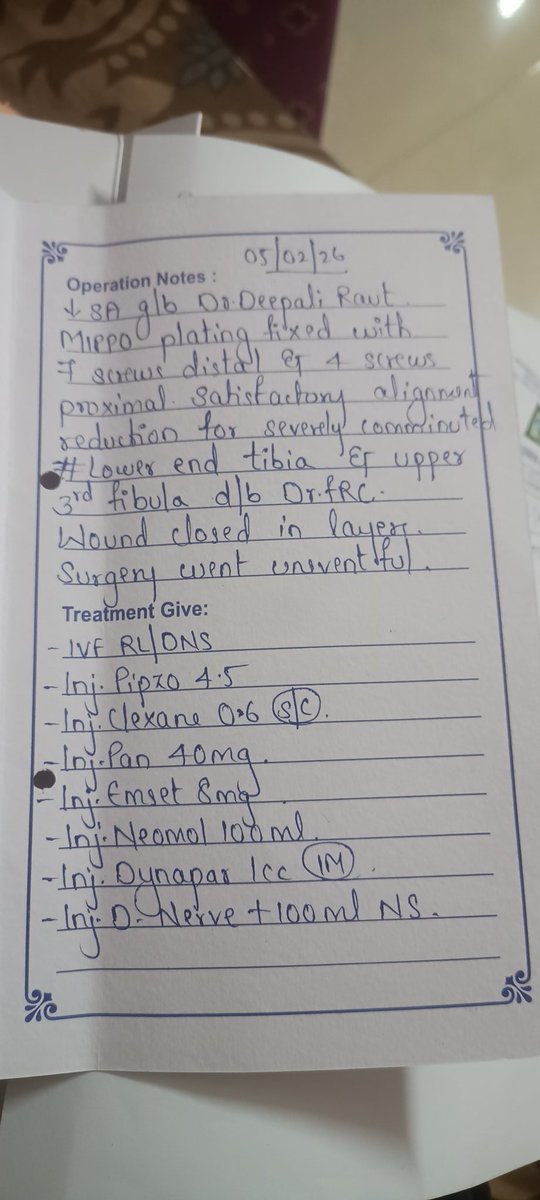 05/02/26
Operation Notes :
↓ SA g/b Dr. Deepali Raut.
MIPPO plating fixed with
7 screws distal & 4 screws
proximal. Satisfactory alignment
reduction for severely comminuted
# Lower end tibia & upper
3rd fibula d/b Dr.
Wound closed in layers.
Surgery went unsventful.
Treatment Give:
- IVF RL/DNS
- Inj. Pipzo 4.5
- Inj. Clexane 0.6 S/C.
- Inj. Pan 40mg.
- Inj. Emset 8mg
- Inj. Neomol 100ml.
- Inj. Dynapar 1cc IM.
- Inj. D. Nerve + 100ml NS.